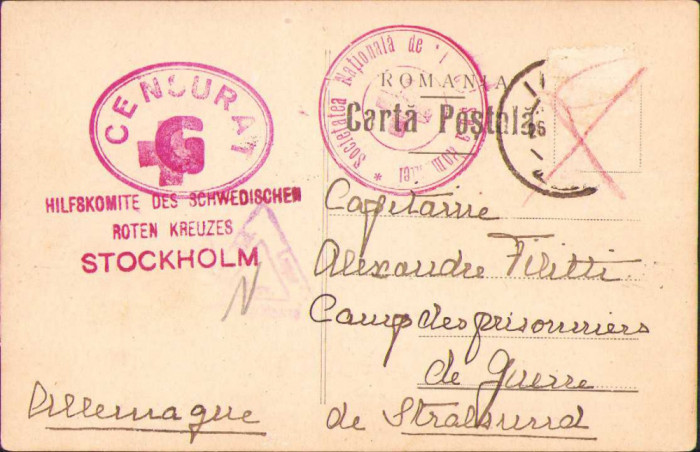 CENSURAT
G
HILFSKOMITE DES SCHWEDISCHEN
ROTEN KREUZES
STOCKHOLM
N
Allemagne
* Societatea Națională de
ROMANIA
Cartă Poștală
26
Capitaine
Alexandre Filitti
Camp des prisonniers
de Guerre
de Stralsund